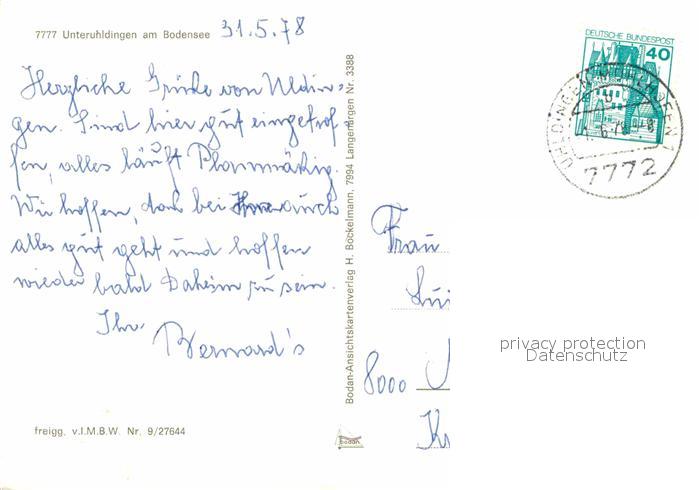 7777 Unteruhldingen am Bodensee 31.5.78
Herzliche Grüße von Uldin-
gen. Sind hier gut eingetrof
fen, alles läuft Planmäßig.
Wir hoffen, daß bei auch
alles gut geht und hoffen
wieder bald Daheim zu sein.
Ihr
Bernard's
freigg. v.I.M.B.W. Nr. 9/27644
Bodan-Ansichtskartenverlag H. Bockelmann, 7994 Langenargen Nr. 3388
bodan
DEUTSCHE BUNDESPOST
40
7772
Frau
8000
privacy protection
Datenschutz